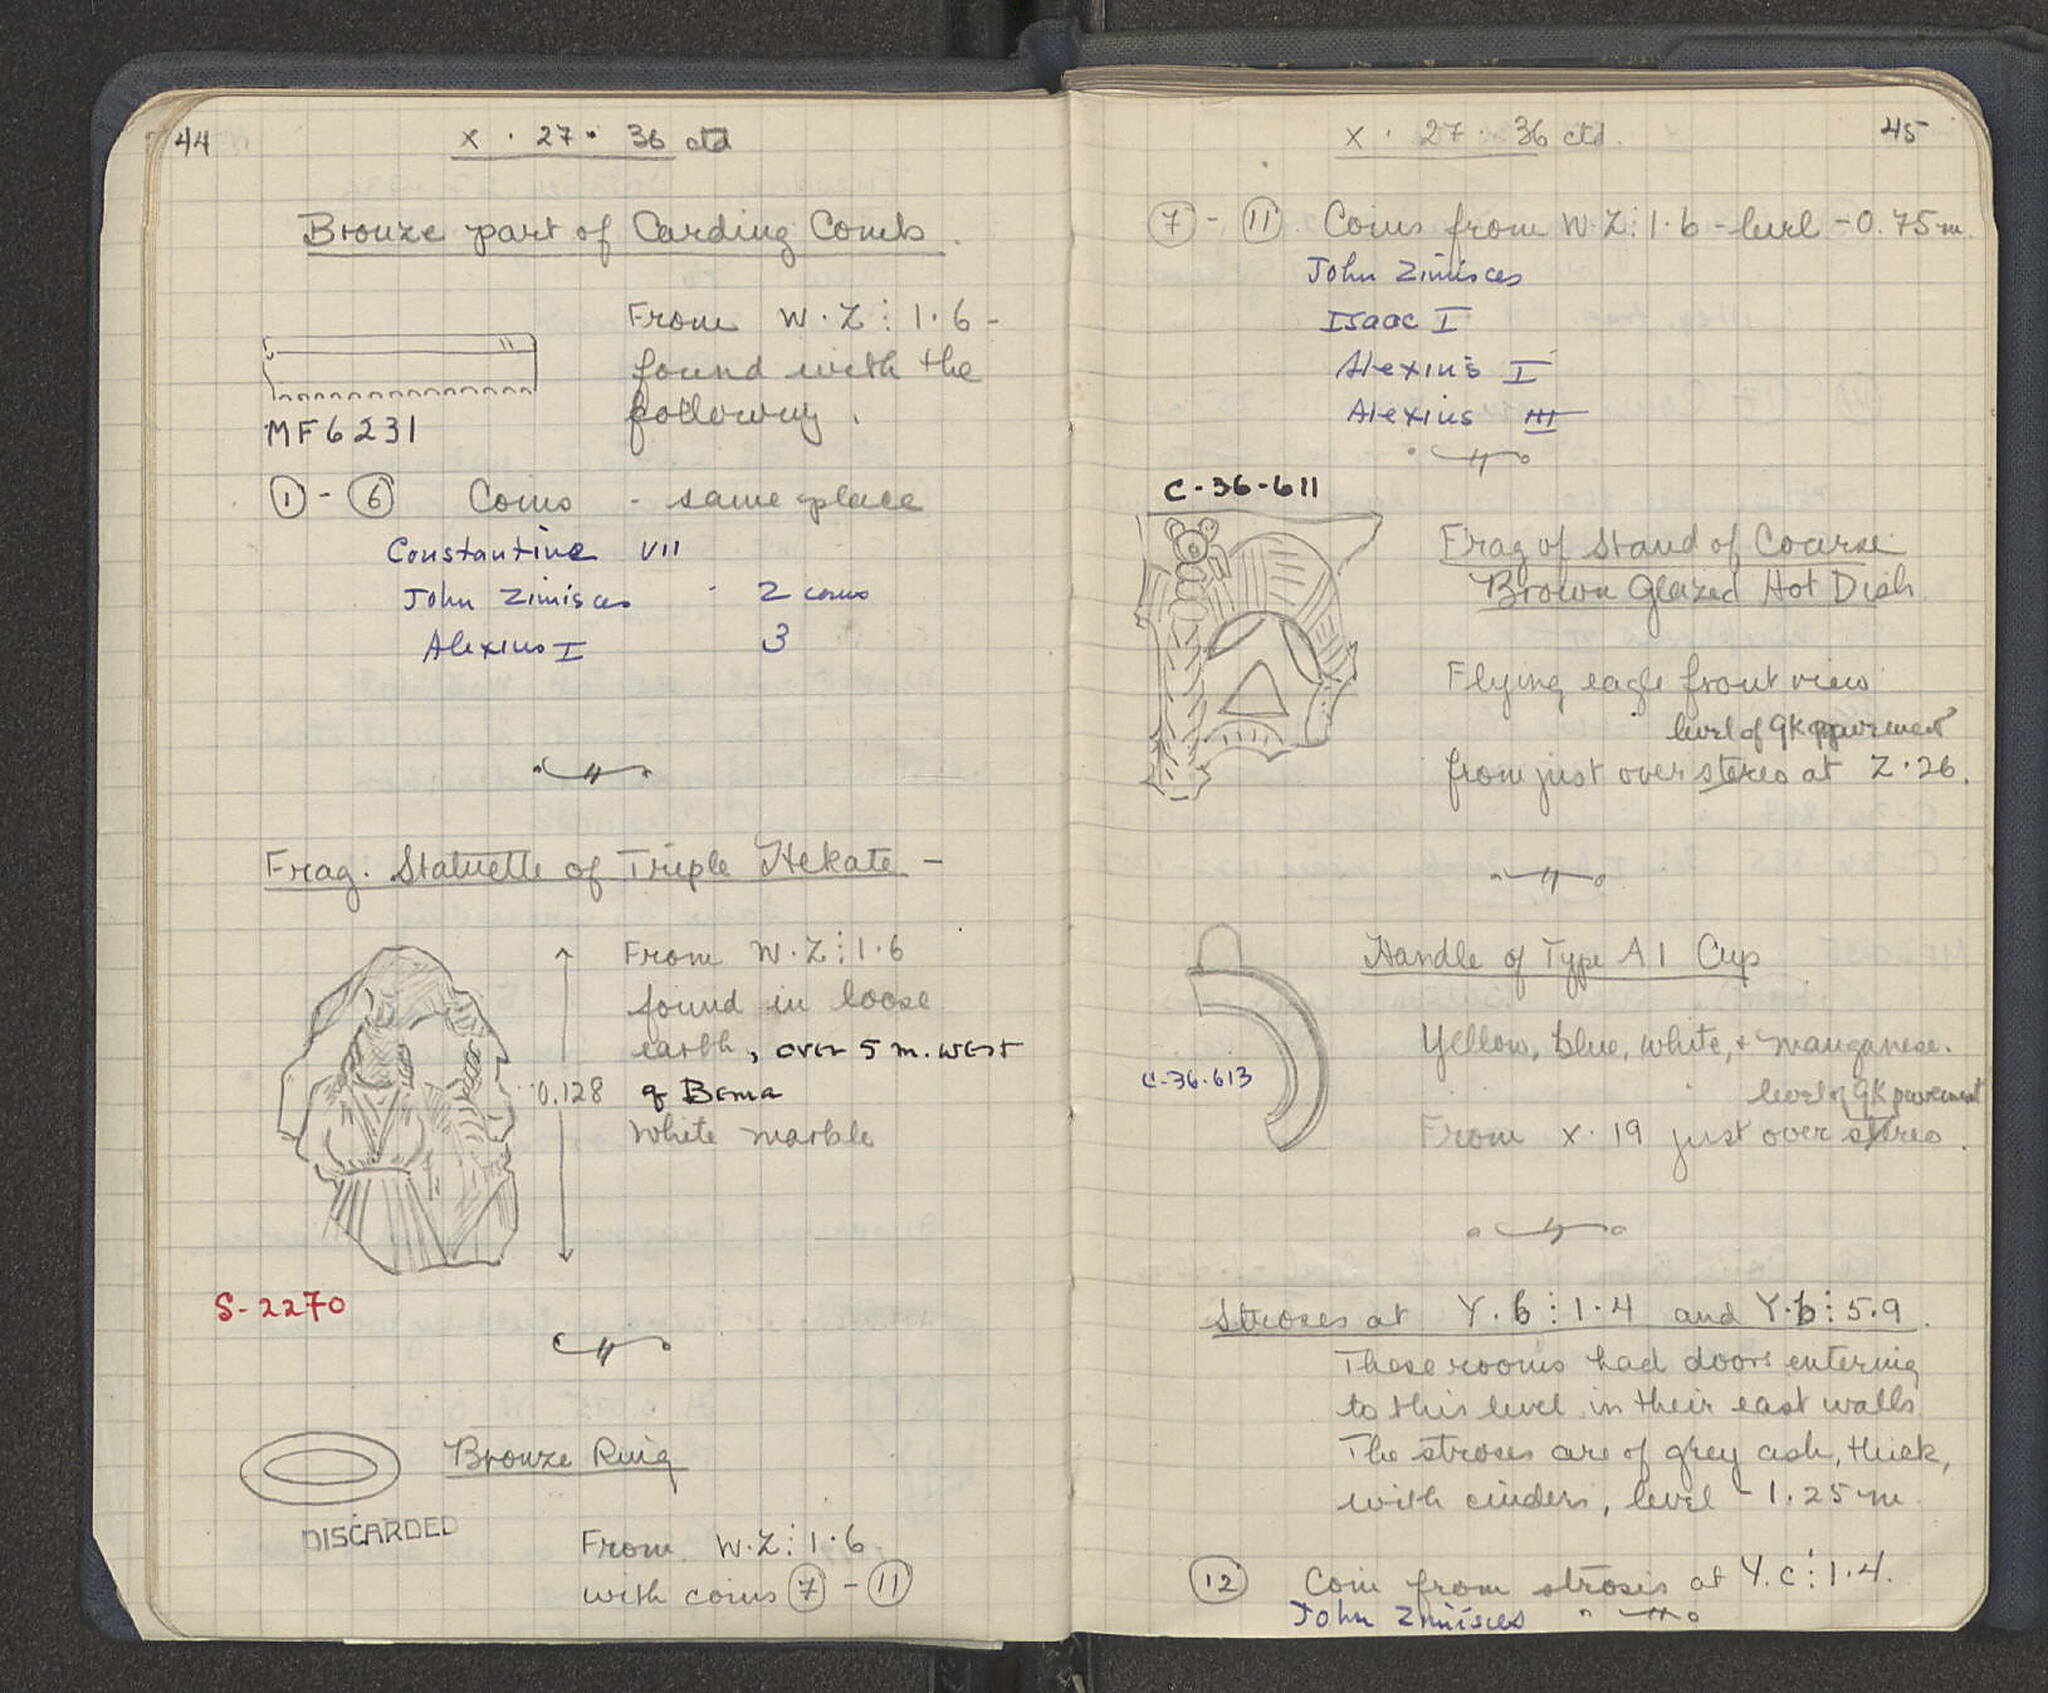 44
x · 27 · 36 ctd
Bronze part of Carding Comb.
From W·Z⋮1·6 -
found with the
following.
MF6231
① - ⑥ Coins - same place
Constantine VII
John Zimisces - 2 coins
Alexius I 3
Frag. Statuette of Triple Hekate -
From W·Z⋮1·6
found in loose
earth, over 5 m. west
0.128 of Bema
White marble
S-2270
Bronze Ring
DISCARDED
From W·Z⋮1·6
with coins ⑦ - ⑪
x · 27 · 36 ctd. 45
⑦ - ⑪ Coins from W·Z⋮1·6 - level -0.75m.
John Zimisces
Isaac I
Alexius I
Alexius III
C-36-611
Frag of Stand of Coarse
Brown Glazed Hot Dish
Flying eagle front view
level of GK pavement
from just over stereo at Z·26.
Handle of Type A 1 Cup
Yellow, blue, white, + manganese.
C-36-613
level of GK pavement
From x·19 just over stereo.
Stroses at Y.b⋮1·4 and Y.b⋮5.9.
These rooms had doors entering
to this level in their east walls
The stroses are of grey ash, thick,
with cinders, level -1.25m.
⑫ Coin from strosis at Y.c⋮1·4.
John Zimisces